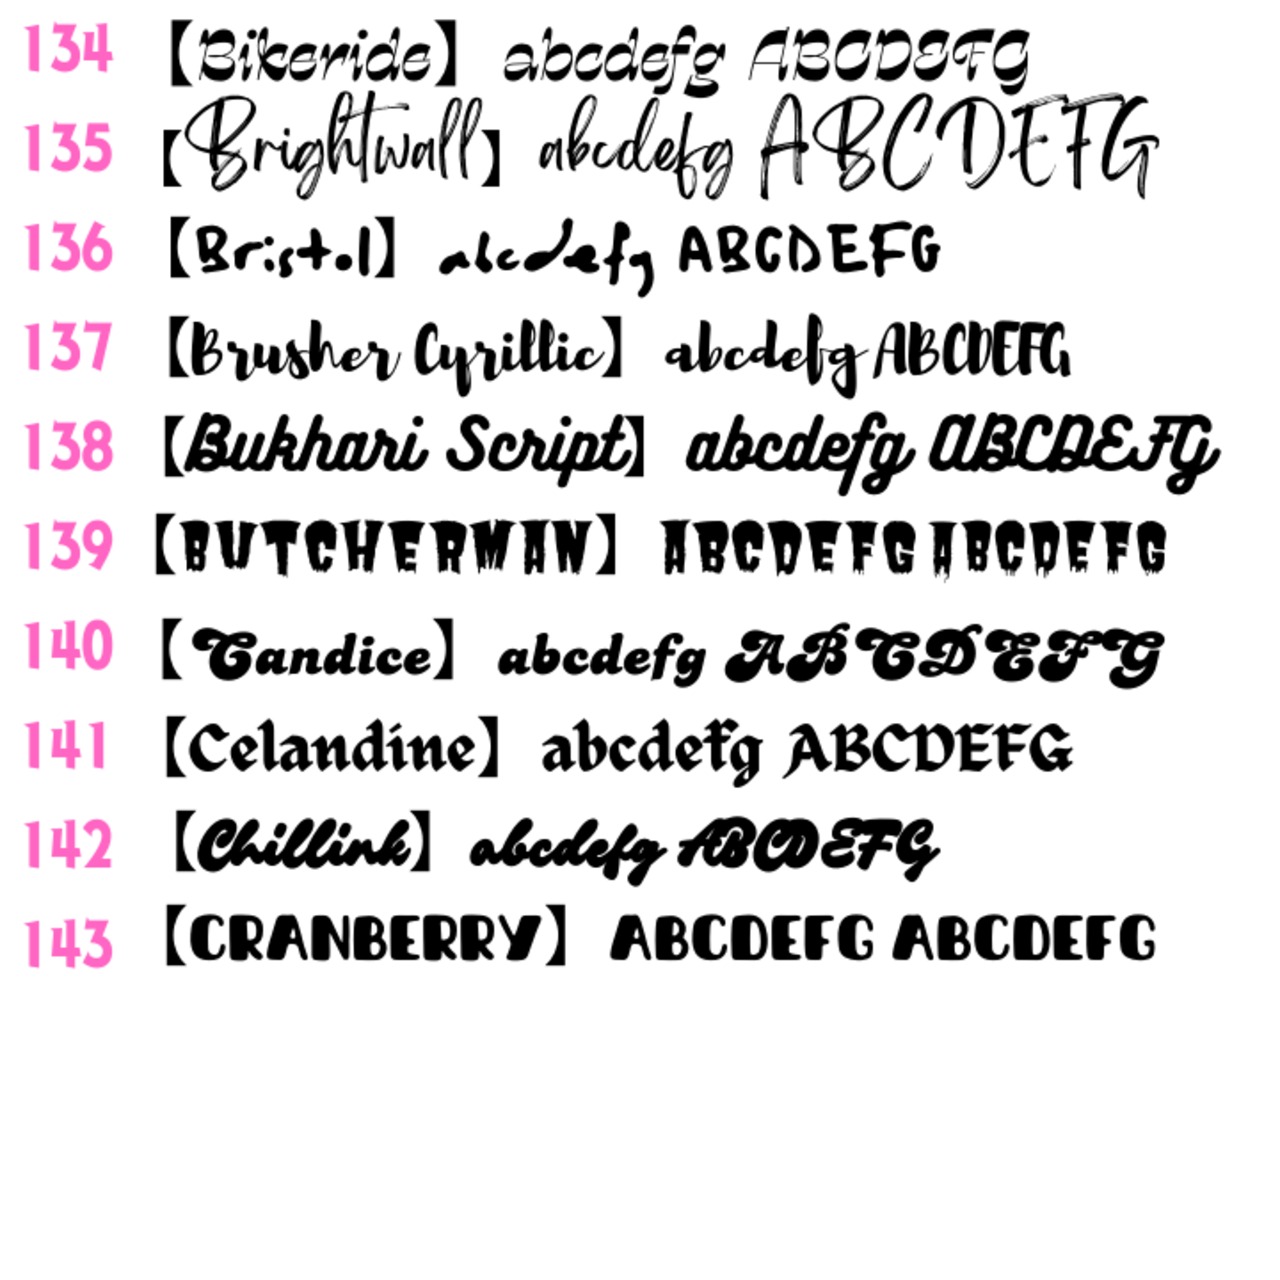 134 【Bikeride】 abcdefg ABCDEFG
135 【Brightwall】 abcdefg ABCDEFG
136 【Bristol】 abcdefg ABCDEFG
137 【Brusher Cyrillic】 abcdefg ABCDEFG
138 【Bukhari Script】 abcdefg ABCDEFG
139 【BUTCHERMAN】 ABCDEFG ABCDEFG
140 【Candice】 abcdefg ABCDEFG
141 【Celandine】 abcdefg ABCDEFG
142 【Chillink】 abcdefg ABCDEFG
143 【CRANBERRY】 ABCDEFG ABCDEFG